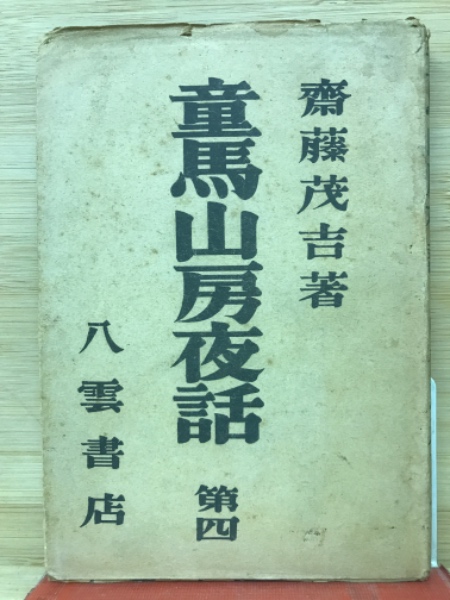 齋藤茂吉著
童馬山房夜話
第四
八雲書店